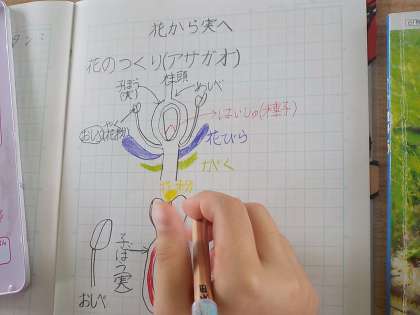 花から実へ
花のつくり(アサガオ)
柱頭
しぼう
(実)
めしべ
おしべ(花粉)
はいしゅ(種子)
花びら
がく
花粉
子ぼう(実)
おしべ